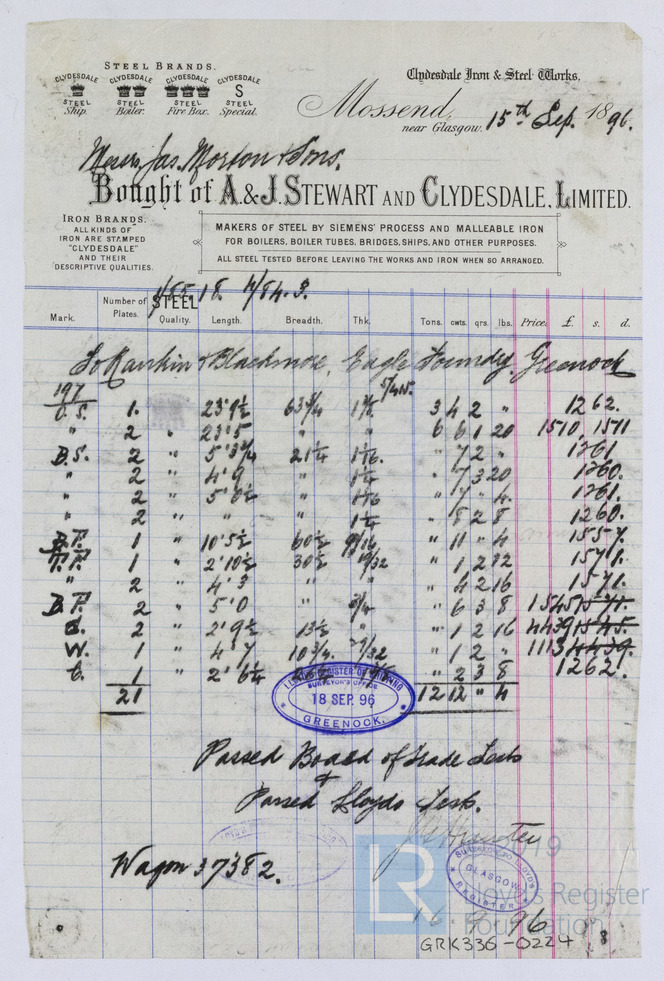 STEEL BRANDS.
CLYDESDALE CLYDESDALE CLYDESDALE CLYDESDALE
S
STEEL STEEL STEEL STEEL
Ship. Boiler. Fire Box. Special.
Clydesdale Iron & Steel Works,
Mossend,
near Glasgow. 15th Sep. 1896.
Messrs Jas. Morton & Sons.
Bought of A. & J. STEWART AND CLYDESDALE, LIMITED.
IRON BRANDS.
ALL KINDS OF
IRON ARE STAMPED
"CLYDESDALE"
AND THEIR
DESCRIPTIVE QUALITIES.
MAKERS OF STEEL BY SIEMENS' PROCESS AND MALLEABLE IRON
FOR BOILERS, BOILER TUBES, BRIDGES, SHIPS, AND OTHER PURPOSES.
ALL STEEL TESTED BEFORE LEAVING THE WORKS AND IRON WHEN SO ARRANGED.
Mark. Number of Plates. STEEL Quality. Length. Breadth. Thk. Tons. cwts. qrs. lbs. Price. £ s. d.
To Rankin & Blackmore, Eagle Foundry, Greenock
197
1. 23'9½ 63¾ 3 4 2 " 1262.
" 2 " 23'5 " " 6 6 1 20 1510. 1511
B.S. 2 " 5'3¾ 21¼ " 7 2 " 1261
" 2 " 4'9 " 1¼ " 7 3 20 1260.
" 2 " " " 7 " 4. 1261.
" 2 " " " 1¼ " 8 2 8 1260.
B.F. 1 " 10'5½ 60½ 9/16 " 11 " 4 1557.
T.F. 1 " 2'10½ 30½ 19/32 " 1 2 22 1571.
" 2 " 4'3 " " " 4 2 16 1571.
B.F. 2 " 5'0 " ¾ " 6 3 8 1545 1571.
2 " 2'9½ 13½ " 1 2 16 4439 1545.
W. 1 " 4'7 10¾ " 1 2 " 1113 4439.
C. 1 " 2'6¼ " 2 3 8 1262.
21 12 12 " 4
LLOYD'S REGISTER OF SHIPPING
SURVEYOR'S OFFICE
18 SEP. 96
GREENOCK.
Passed Board of Trade Tests
&
Passed Lloyds Tests.
Wagon 37382.
GLASGOW
REGISTER
16 . 9 . 96
LR
Lloyd's Register
Foundation
GRK336-0224